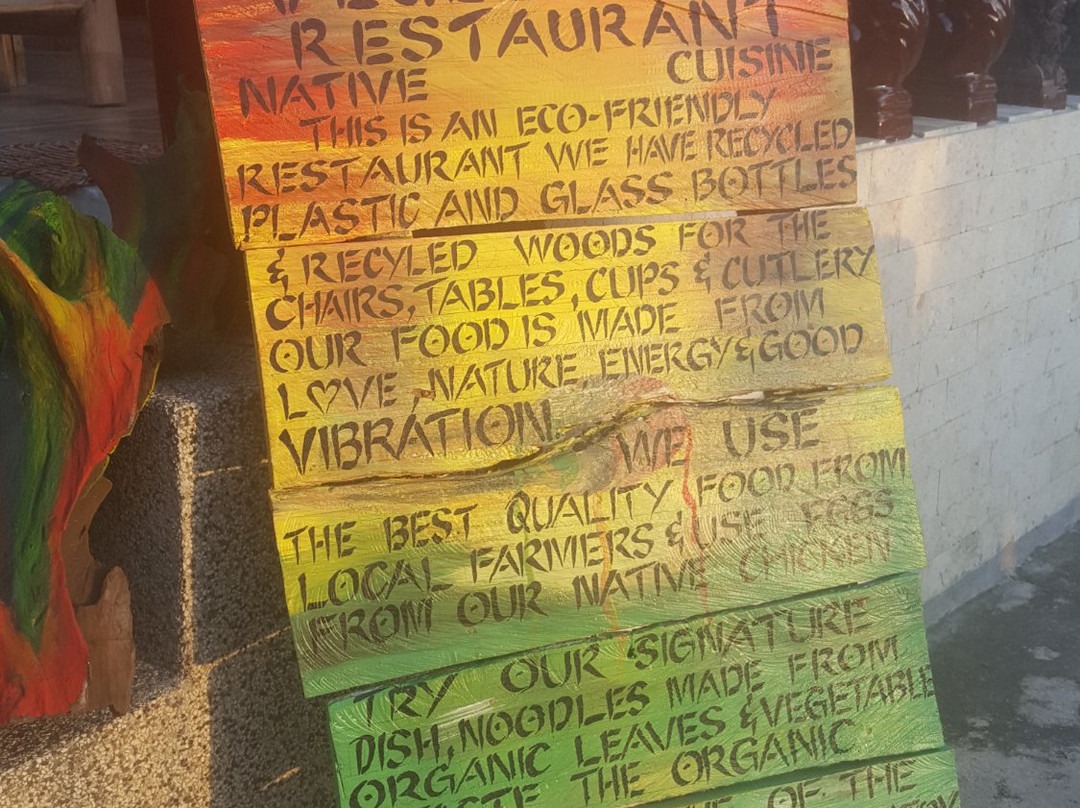 RESTAURANT
NATIVE CUISINE
THIS IS AN ECO-FRIENDLY
RESTAURANT WE HAVE RECYCLED
PLASTIC AND GLASS BOTTLES
& RECYLED WOODS FOR THE
CHAIRS, TABLES, CUPS & CUTLERY
OUR FOOD IS MADE FROM
L♡VE NATURE, ENERGY & GOOD
VIBRATION. WE USE
THE BEST QUALITY FOOD FROM
LOCAL FARMERS & USE EGGS
FROM OUR NATIVE CHICKEN
TRY OUR SIGNATURE
DISH, NOODLES MADE FROM
ORGANIC LEAVES & VEGETABLE
TASTE THE ORGANIC
OF THE